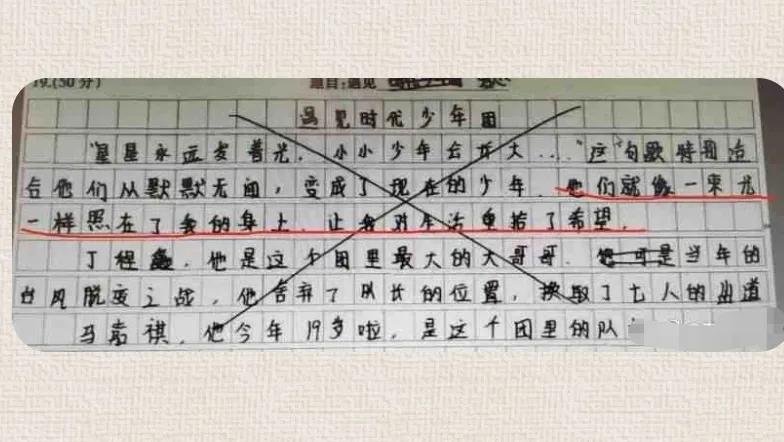 19.(50分) 题目:遇见
遇见时代少年团
"星星永远发着光,小小少年会长大..."这句歌特别适
合他们从默默无闻,变成了现在的少年.他们就像一束光
一样照在了我的身上,让我对生活重拾了希望.
丁程鑫,他是这个团里最大的大哥哥.他可是当年的
台风脱变之战,他舍弃了队长的位置,换取了七人的出道
马嘉祺,他今年19多啦,是这个团里的队